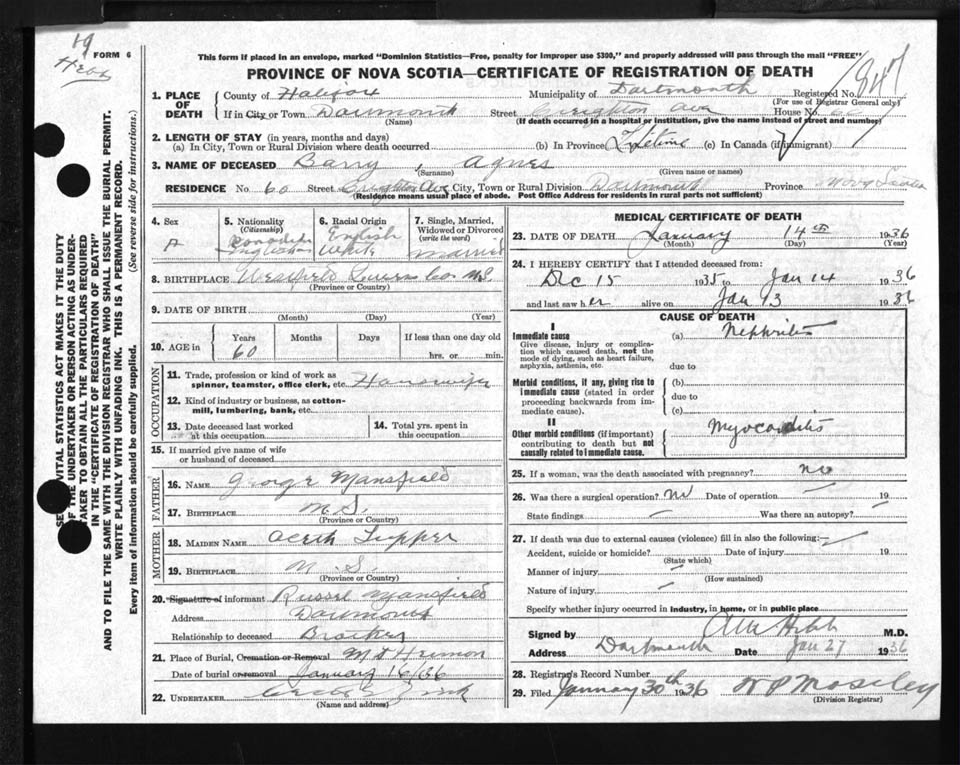 19
FORM 6
This form if placed in an envelope, marked "Dominion Statistics—Free, penalty for improper use $300," and properly addressed will pass through the mail "FREE"
PROVINCE OF NOVA SCOTIA—CERTIFICATE OF REGISTRATION OF DEATH
847
1. PLACE OF DEATH
County of Halifax Municipality of Dartmouth Registered No.
(For use of Registrar General only)
If in City or Town Dartmouth Street Creighton Ave House No. 60
(Name) (If death occurred in a hospital or institution, give the name instead of street and number)
2. LENGTH OF STAY (in years, months and days)
(a) In City, Town or Rural Division where death occurred (b) In Province Lifetime (c) In Canada (if immigrant)
3. NAME OF DECEASED Barry, Agnes
(Surname) (Given name or names)
RESIDENCE No 60 Street Creighton Ave City, Town or Rural Division Dartmouth Province Nova Scotia
(Residence means usual place of abode. Post Office Address for residents in rural parts not sufficient)
SEE VITAL STATISTICS ACT MAKES IT THE DUTY
OF THE UNDERTAKER OR PERSON ACTING AS UNDER-
TAKER TO OBTAIN ALL THE PARTICULARS REQUIRED
IN THE "CERTIFICATE OF REGISTRATION OF DEATH"
AND TO FILE THE SAME WITH THE DIVISION REGISTRAR WHO SHALL ISSUE THE BURIAL PERMIT.
WRITE PLAINLY WITH UNFADING INK. THIS IS A PERMANENT RECORD.
Every item of information should be carefully supplied. (See reverse side for instructions.)
4. Sex
5. Nationality (Citizenship) Canadian
6. Racial Origin English White
7. Single, Married, Widowed or Divorced (write the word) Married
8. BIRTHPLACE Westfield Queens Co. N.S.
(Province or Country)
9. DATE OF BIRTH
(Month) (Day) (Year)
10. AGE in Years 60 Months Days If less than one day old
hrs. or min.
OCCUPATION
11. Trade, profession or kind of work as
spinner, teamster, office clerk, etc. Housewife
12. Kind of industry or business, as cotton-
mill, lumbering, bank, etc.
13. Date deceased last worked
at this occupation
14. Total yrs. spent in
this occupation
15. If married give name of wife
or husband of deceased
FATHER
16. NAME George Mansfield
17. BIRTHPLACE N.S.
(Province or Country)
MOTHER
18. MAIDEN NAME Tupper
19. BIRTHPLACE N.S.
(Province or Country)
20. Signature of informant Russel Mansfield
Address Dartmouth
Relationship to deceased Brother
21. Place of Burial, Cremation or Removal Mt Hermon
Date of burial or removal January 16/36
22. UNDERTAKER
(Name and address)
MEDICAL CERTIFICATE OF DEATH
23. DATE OF DEATH January 14th 1936
(Month) (Day) (Year)
24. I HEREBY CERTIFY that I attended deceased from:
Dec 15 1935 to Jan 14 1936
and last saw her alive on Jan 13 1936
CAUSE OF DEATH
I
Immediate cause
Give disease, injury or complica-
tion which caused death, not the
mode of dying, such as heart failure,
asphyxia, asthenia, etc.
(a) Nephritis
due to
Morbid conditions, if any, giving rise to
immediate cause (stated in order
proceeding backwards from im-
mediate cause).
(b)
due to
(c)
II
Other morbid conditions (if important)
contributing to death but not
causally related to immediate cause.
Myocarditis
25. If a woman, was the death associated with pregnancy? no
26. Was there a surgical operation? no Date of operation 19
State findings Was there an autopsy?
27. If death was due to external causes (violence) fill in also the following:
Accident, suicide or homicide? Date of injury 19
(State which)
Manner of injury
(How sustained)
Nature of injury
Specify whether injury occurred in industry, in home, or in public place
Signed by Hebb M.D.
Address Dartmouth Date Jan 27 1936
28. Registrar's Record Number
29. Filed January 30th 1936 Moseley
(Division Registrar)